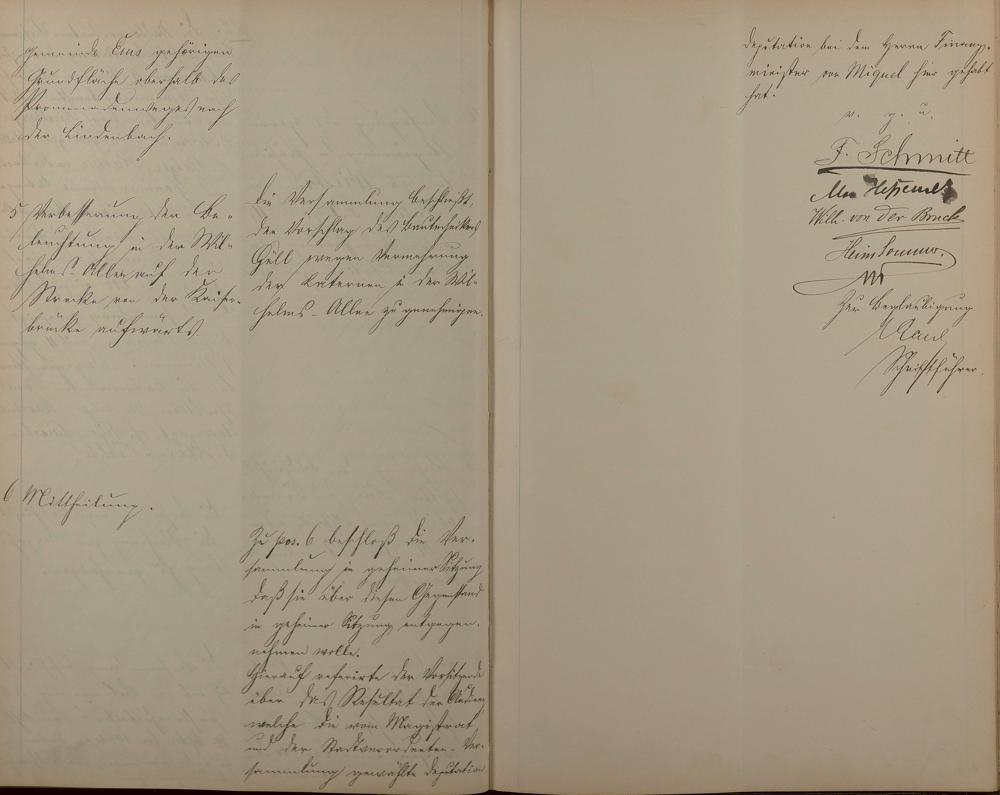 Gemeinde Ems gehörigen
Grundfläche oberhalb des
Promenadenweges nach
der Lindenbach.
5 Verbesserung der Be-
leuchtung in der Wil-
helms-Allee auf der
Strecke von der Kaiser-
brücke aufwärts.
Die Versammlung beschließt,
den Vorschlag des Bautechnikers
Güll wegen Vermehrung
der Laternen i. der Wil-
helms-Allee zu genehmigen.
6 Mittheilung.
Zu pos. 6 beschloß die Ver-
sammlung in geheimer Sitzung
daß sie über diesen Gegenstand
in geheimer Sitzung entgegen-
nehmen wolle.
Hierauf referirte der Vorsitzende
über das Resultat der Audienz
welche die vom Magistrat
und der Stadtverordneten-Ver-
sammlung gewählte Deputation
Deputation bei dem Herrn Finanz-
minister von Miquel hier gehabt
hat.
v. g. u.
F. Schmitt
Wilh. von der Bruck
Heinr Sommer.
Zur Beglaubigung
Schriftführer.